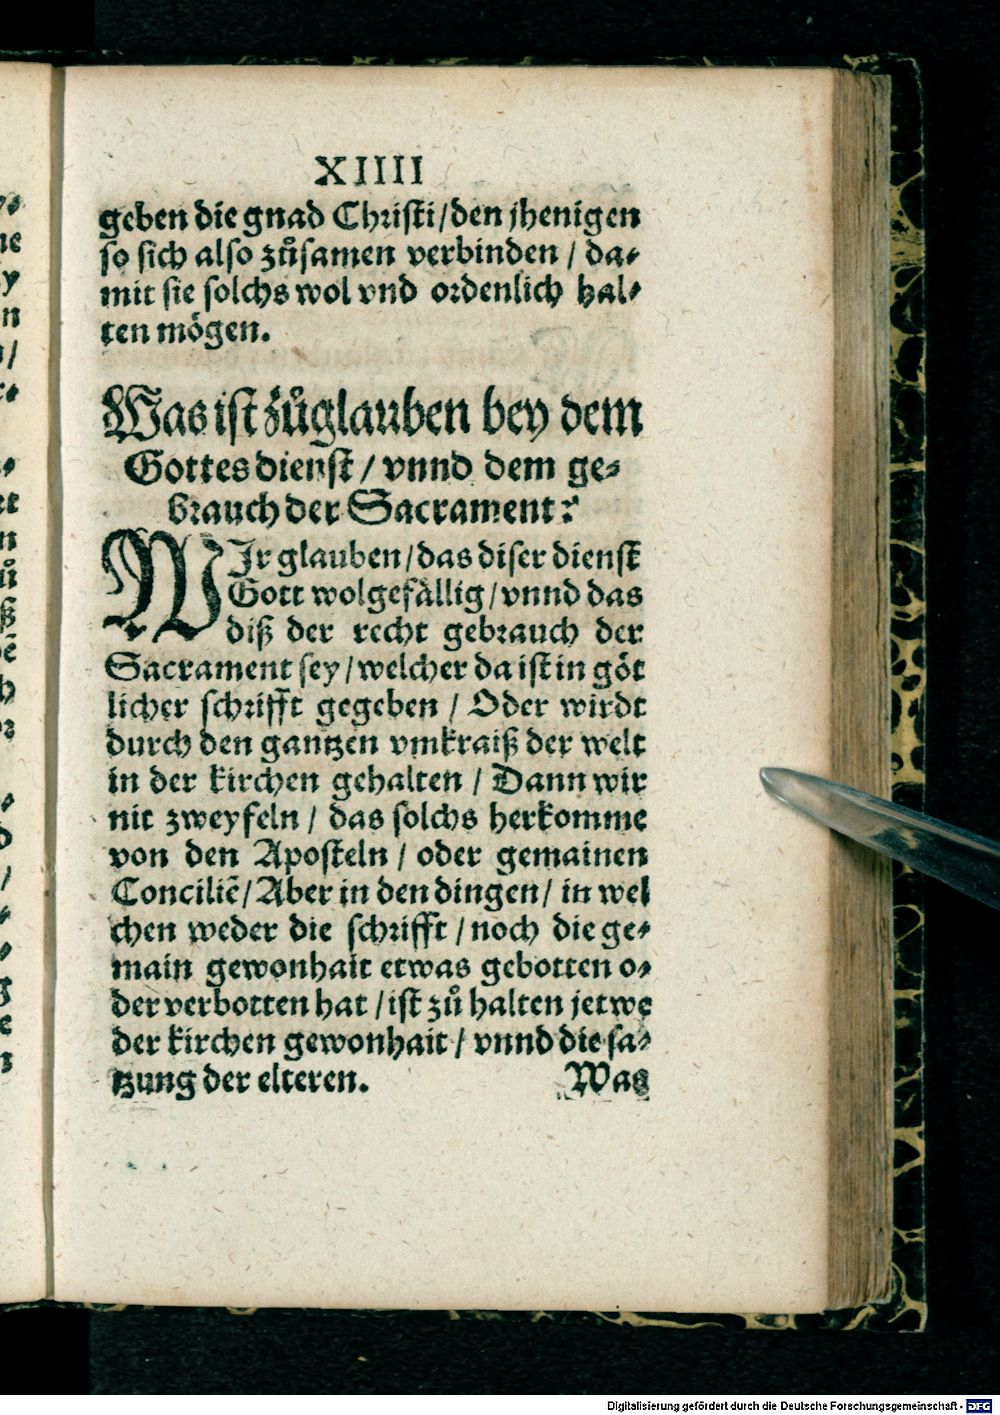 XIIII
geben die gnad Christi/den jhenigen
so sich also zůsamen verbinden / da⸗
mit sie solchs wol vnd ordenlich hal⸗
ten mögen.
Was ist zůglauben bey dem
Gottes dienst / vnnd dem ge⸗
brauch der Sacrament?
WIr glauben/das diser dienst
Gott wolgefällig/vnnd das
diß der recht gebrauch der
Sacrament sey/welcher da ist in göt
licher schrifft gegeben / Oder wirdt
durch den gantzen vmkraiß der welt
in der kirchen gehalten / Dann wir
nit zweyfeln / das solchs herkomme
von den Aposteln / oder gemainen
Conciliẽ/Aber in den dingen/ in wel
chen weder die schrifft / noch die ge⸗
main gewonhait etwas gebotten o⸗
der verbotten hat / ist zů halten jetwe
der kirchen gewonhait / vnnd die sa⸗
tzung der elteren.
Was
Digitalisierung gefördert durch die Deutsche Forschungsgemeinschaft - DFG